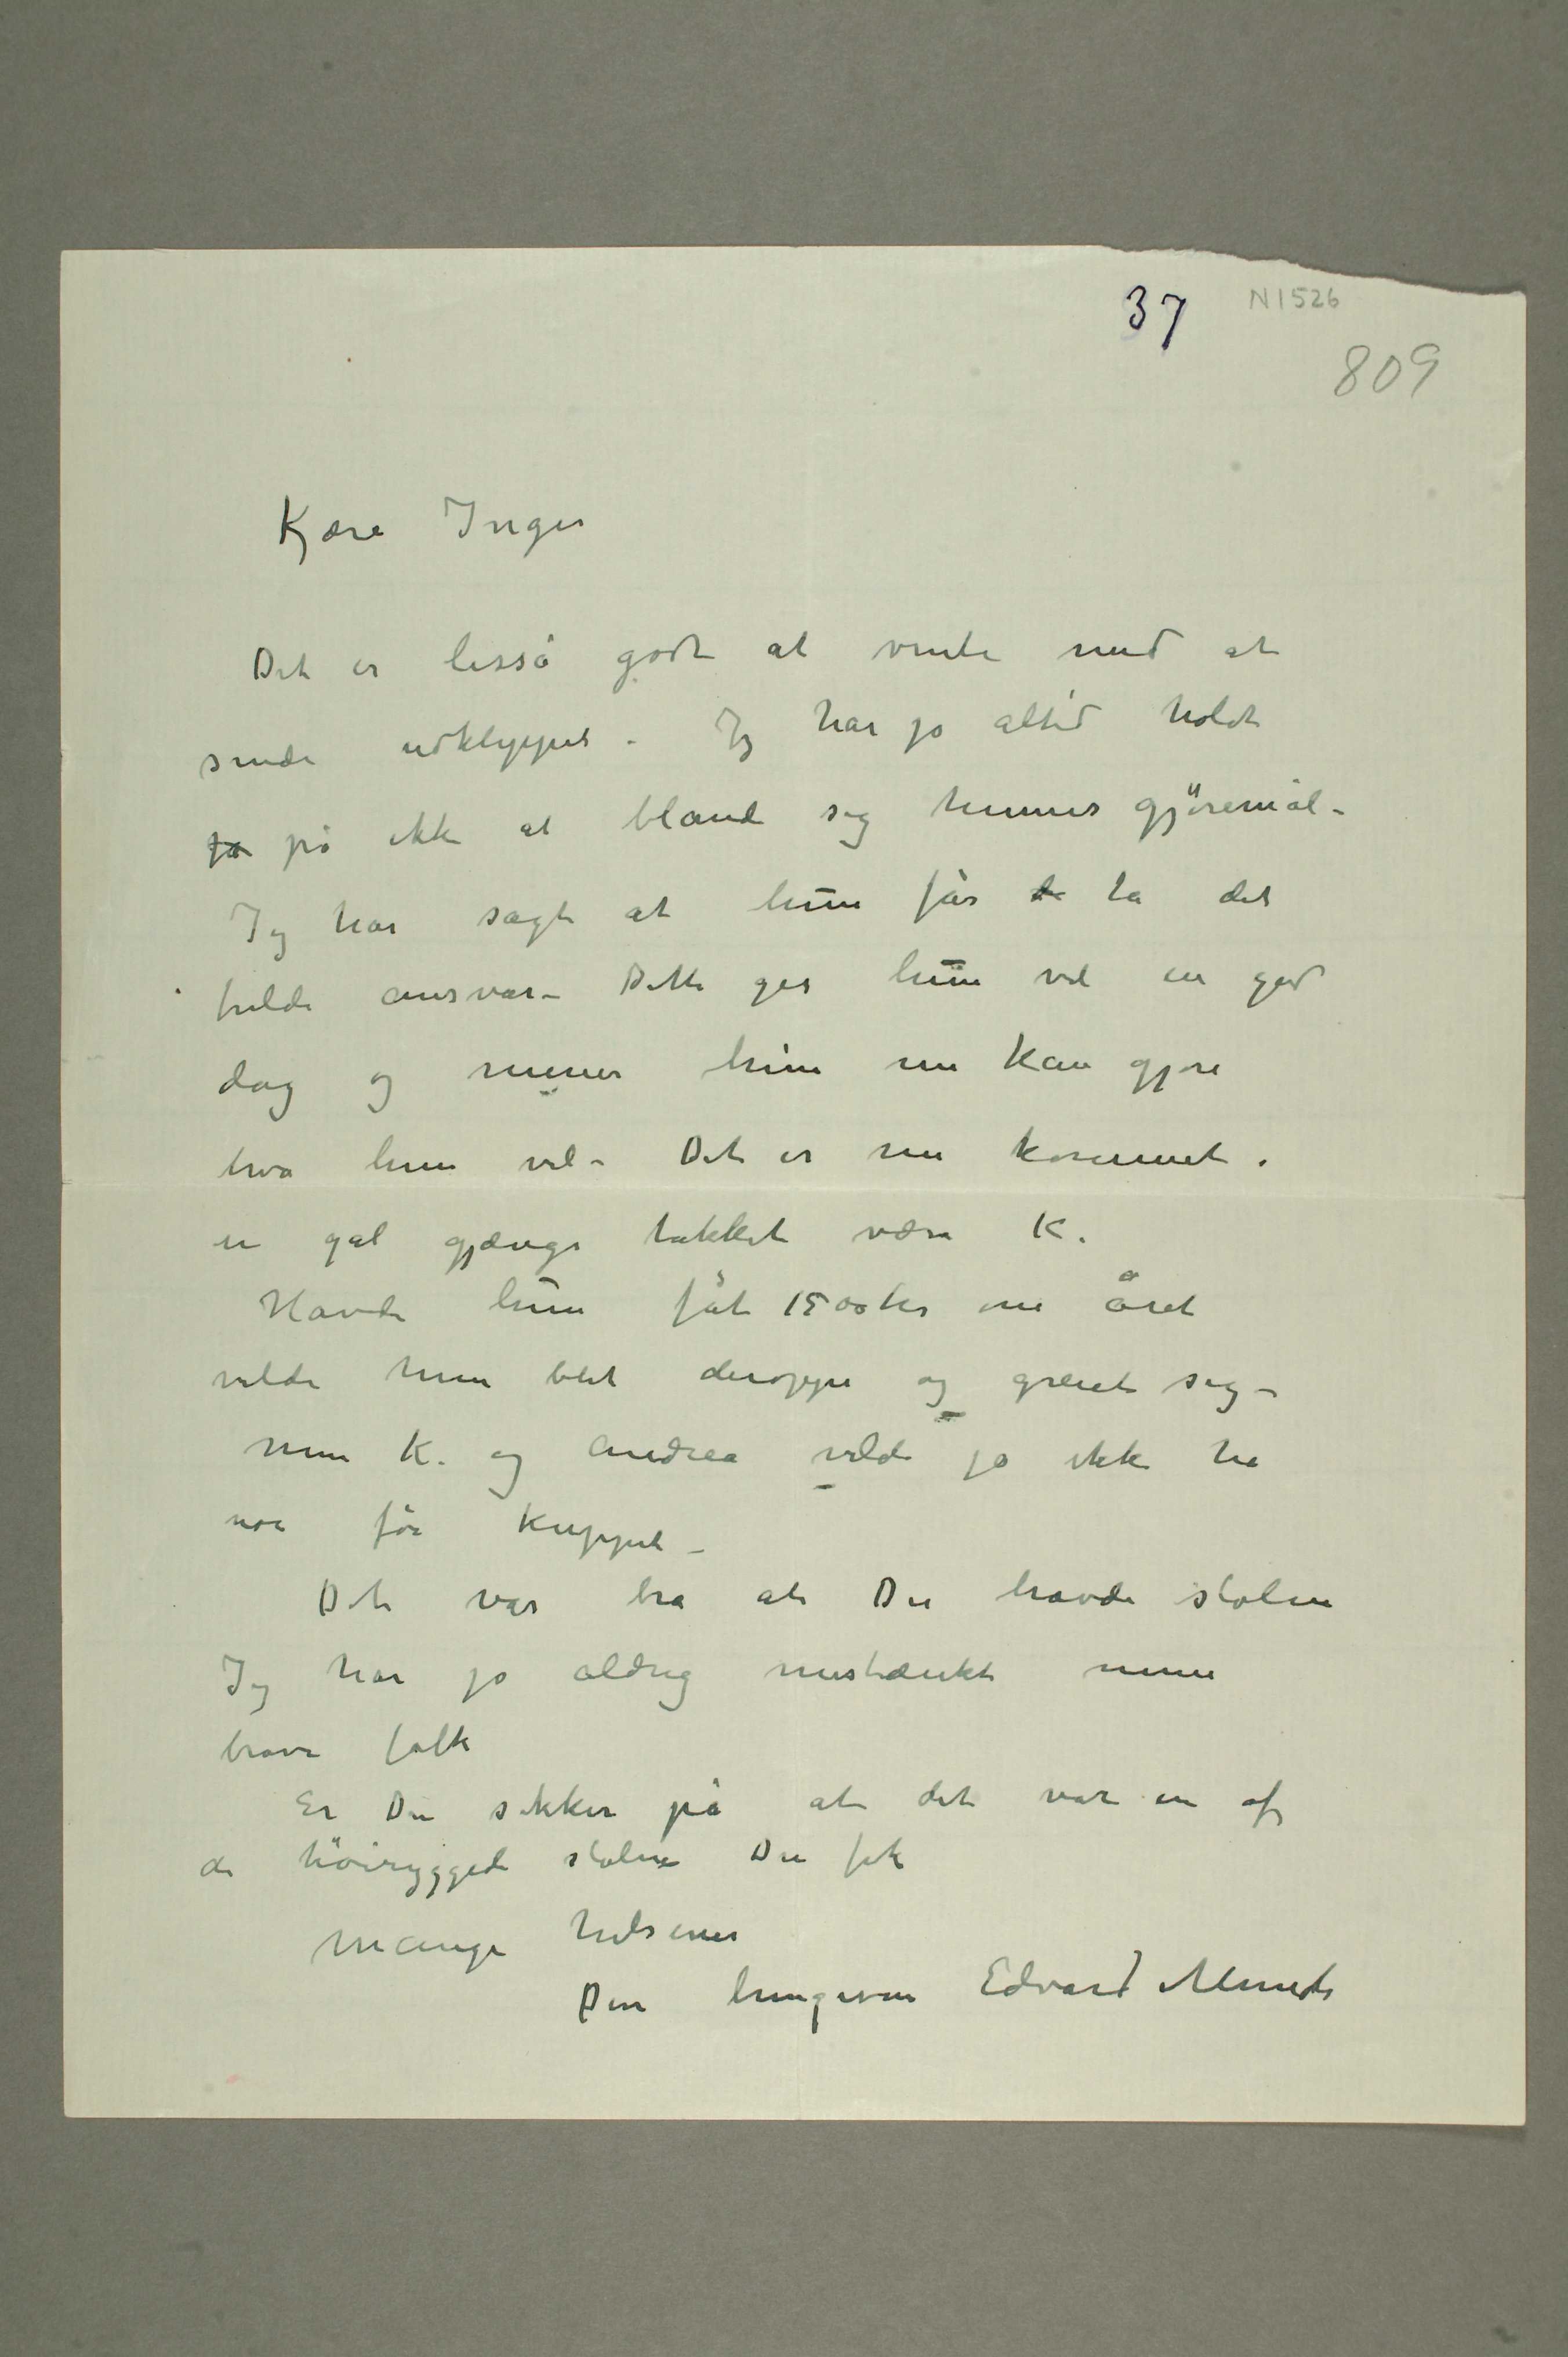 37 N1526
809
Kjære Inger
Det er lisså godt at vente med at
sende udklippet – Jeg har jo altid holdt
ja på ikke at blande sig hennes gjöremål –
Jeg har sagt at hun får de ta det
fulde ansvar – Dette ger hun vel en god
dag og mener hun nu kan gjøre
hva hun vil – Det er nu kommet
en gal gjænge takket være K.
Havde hun fåt 1500 kr om året
vilde hun blit deroppe og greiet sig –
men K. og Andrea vilde jo ikke ha
noe för kuppet –
Det var bra at Du havde stolen
Jeg har jo aldrig mistænkt mine
brave folk
Er Du sikker på at det var en af
de höiryggede stolene Du fik
Mange hilsener
Din hengivne Edvard Munch